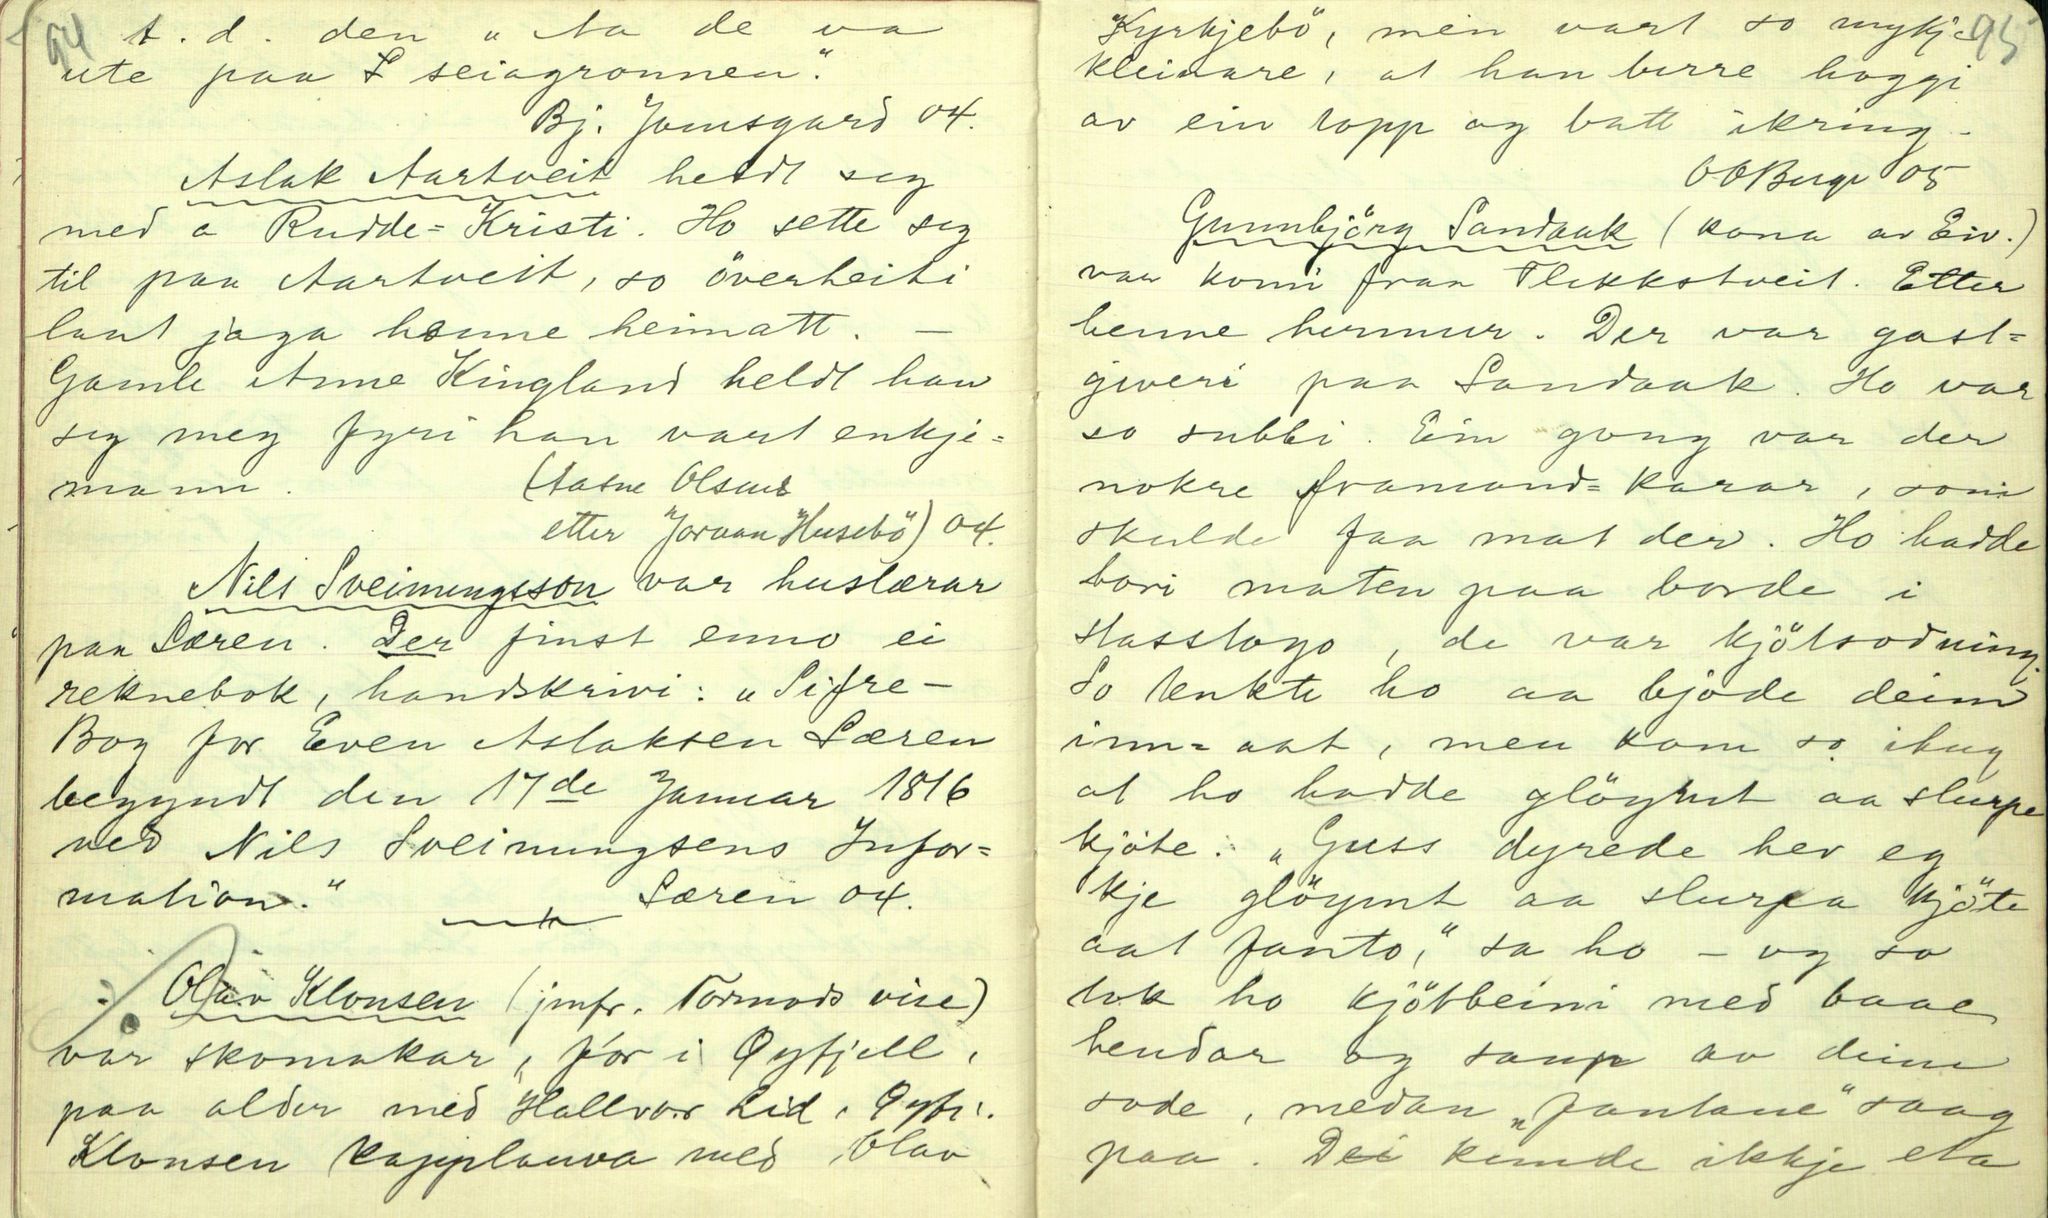 94
t. d. den „Aa de va
ute paa L seiagronnen".
Bj. Jomsgard 04.
Aslak Aartveit heldt seg
med a Rudde=Kristi. Ho sette seg
til paa Aartveit, so överheiti
laut jaga henne heimatt. —
Gamle Anne Kingland heldt han
seg mey fyri han vart enkje=
mann.
(Aasne Olsund
etter "Jorvan Husebö") 04.
Nils Sveinungsson var huslærar
paa Særen. Der finst enno ei
reknebok, handskrivi: „Sifre-
Bog for Even Aslaksen Særen
begyndt den 17de Januar 1816
ved Nils Sveinungsens Infor=
mation."
Særen 04.
Olav Klonsen (jmfr. Tormods vise)
var skomakar, for i Öyfjell,
paa alder med Hallvor Lid, Öyfj.
Klonsen kapplauva med Olav
95
Kyrkjebö, men vart so mykje
kleinare, at han berre hoggi
av ein topp og batt ikring.
O O Berge 05
Gunnbjörg Sandaak (kona av Eiv.)
var komi fraa Flekkstveit. Etter
henne hermur. Der var gast=
giveri paa Sandaak. Ho var
so subbi. Ein gong var der
nokre framand=karar, som
skulde faa mat der. Ho hadde
bori maten paa borde i
stasstogo, de var kjötsodning.
So tenkte ho aa bjode deim
inn=aat, men kom so ihug
at ho hadde glöymt aa slurpe
kjöte. „Guss dyrede hev eg
kje glöymt aa slurpa kjöte
aat fanto," sa ho — og so
tok ho kjötbeini med baae
hendar og saup av deim
sode, medan „fantane" saag
paa. Dei kunde ikkje eta